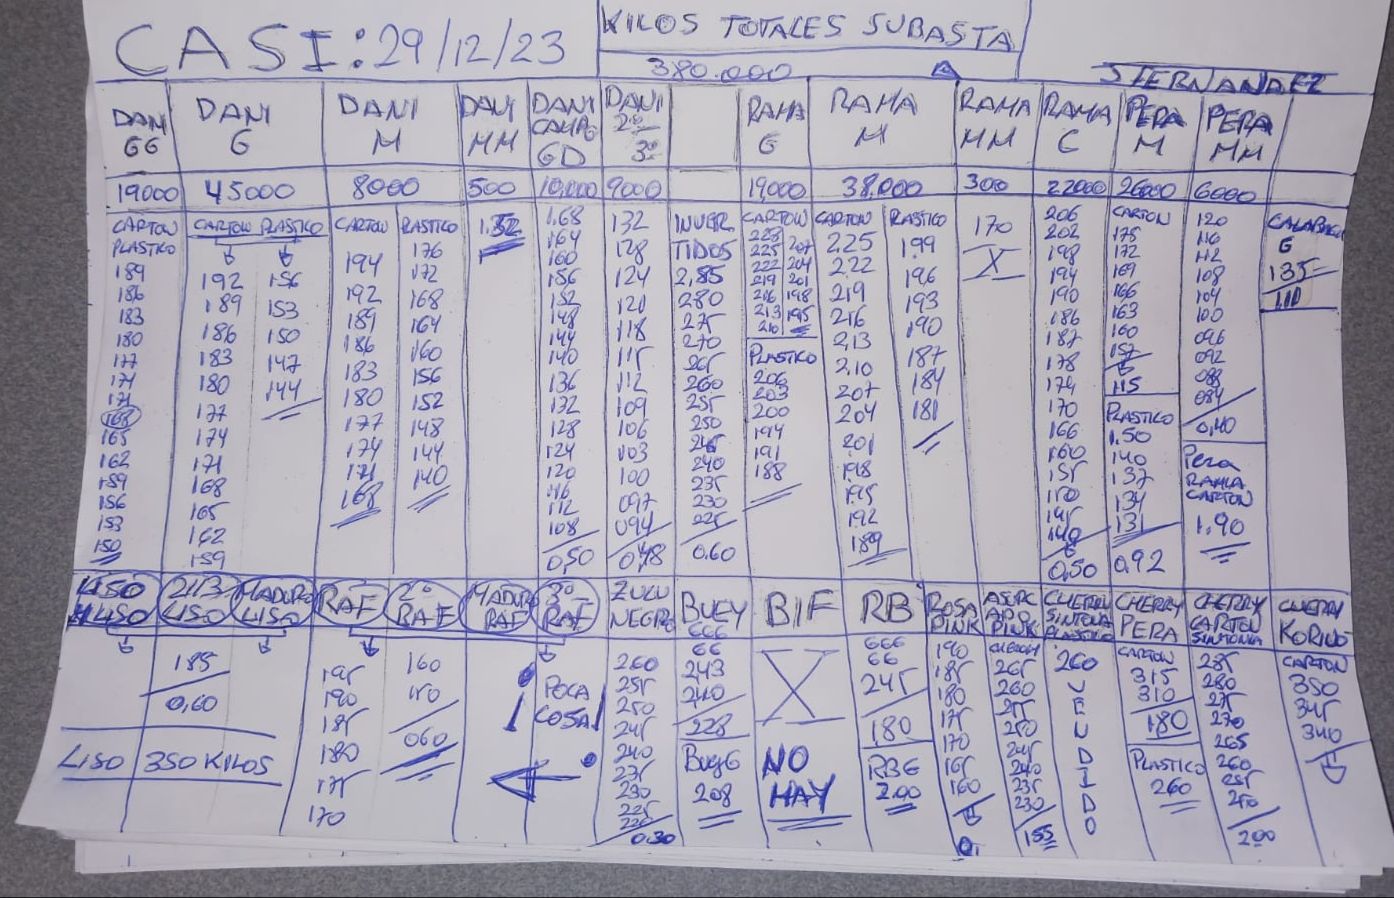 CASI: 29/12/23
KILOS TOTALES SUBASTA
380.000
DANI GG
19000
CARTON
PLASTICO
189
186
183
180
177
174
171
168
165
162
159
156
153
150
DANI G
45000
CARTON PLASTICO
192 156
189 153
186 150
183 147
180 144
177
174
171
168
165
162
159
DANI M
8000
CARTON PLASTICO
176
194 172
192 168
189 164
186 160
183 156
180 152
177 148
174 144
171 140
168
DANI MM
500
DANI CAMPO GD
10,000
1,68
164
160
156
152
148
144
140
136
132
128
124
120
116
112
108
0,50
DANI 2º 3º
9000
132
128
124
121
118
115
112
109
106
103
100
097
094
0,48
INVER
TIDOS
2,85
280
275
270
265
260
255
250
245
240
235
230
225
0.60
RAMA G
19,000
CARTON
228
225 207
222 204
219 201
216 198
213 195
210
PLASTICO
206
203
200
194
191
188
RAMA M
38,000
CARTON PLASTICO
225 199
2,22 196
219 193
216 190
2,13 187
2,10 184
207 181
204
201
198
195
192
189
RAMA MM
300
170
X
RAMA C
22000
206
202
198
194
190
186
187
178
174
170
166
160
155
150
145
140
0,50
PERA M
26000
CARTON
175
172
169
166
163
160
157
115
PLASTICO
1.50
140
137
134
131
0,92
PERA MM
6000
120
116
112
108
104
100
096
092
088
084
0,40
Pera
RAMA
CARTON
1.90
CALABACIN
G
135
1,10
LISO
M LISO
2º/3
LISO
MADURO
LISO
185
0,60
LISO 350 KILOS
RAF
195
190
185
180
175
170
2º
RAF
160
150
060
MADURO
RAF
3º
RAF
POCA
COSA
ZULU
NEGRO
260
255
250
245
240
235
230
225
220
0.30
BUEY
666
66
243
240
228
BUEY G
208
BIF
X
NO
HAY
RB
666
66
245
180
RB G
2.00
ROSA
PINK
190
185
180
175
170
165
160
PINK
265
260
255
250
245
240
235
230
155
CHERRY
SINTONIA
PLASTICO
260
V
E
N
D
I
D
O
CHERRY
PERA
CARTON
315
310
180
PLASTICO
260
CHERRY
CARTON
SINTONIA
285
280
275
270
265
260
255
250
200
CHERRY
KORINO
CARTON
350
345
340